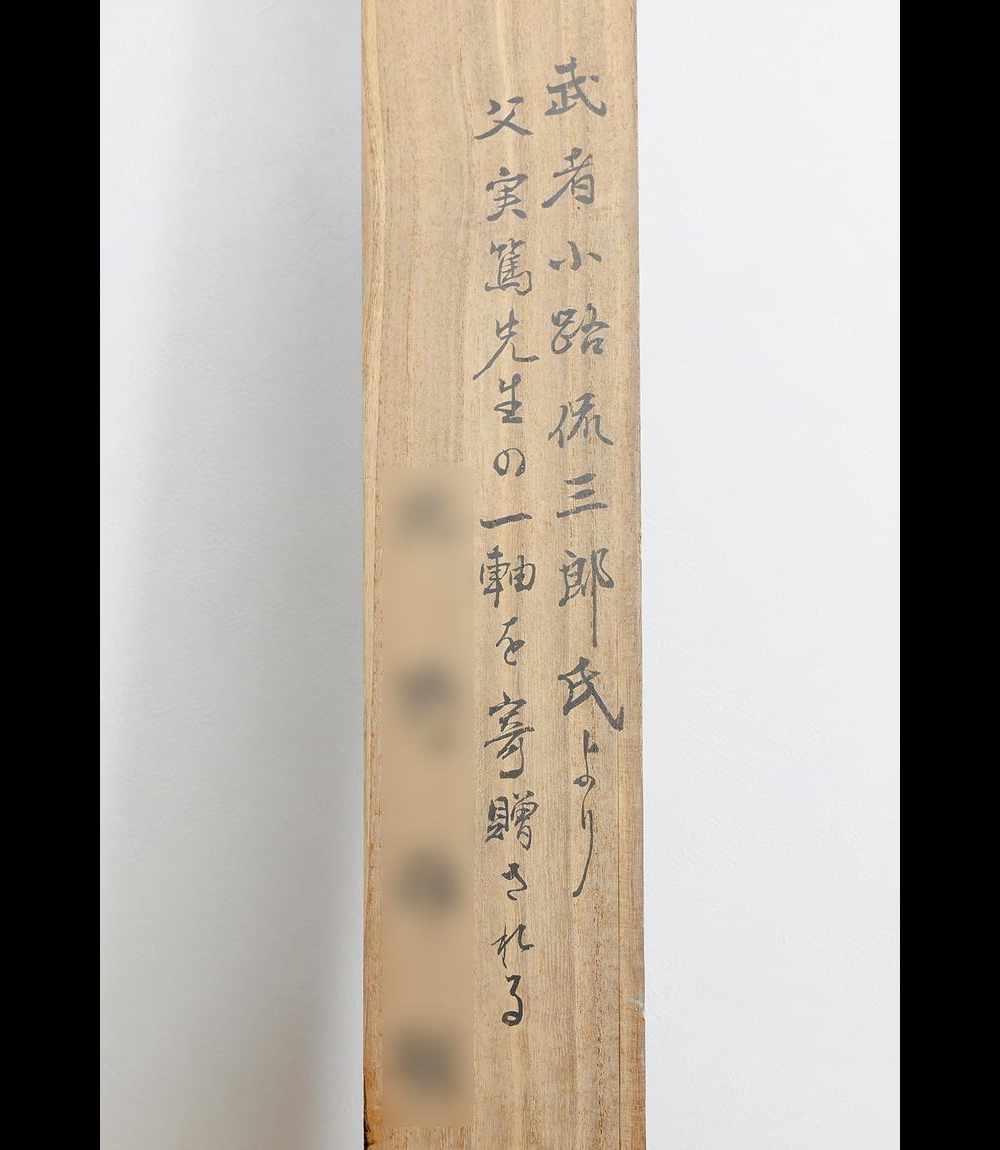 武者小路侃三郎氏より
父実篤先生の一軸を寄贈される